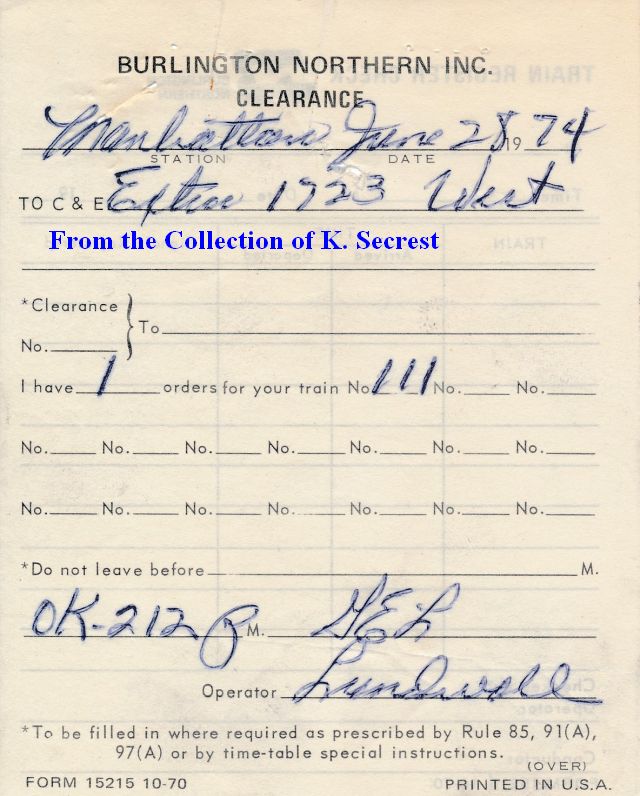 BURLINGTON NORTHERN INC.
CLEARANCE
Manhattan June 28 19 74
STATION DATE
TO C & E Extra 1723 West
From the Collection of K. Secrest
*Clearance
No. ______ } To
I have 1 orders for your train No. 111 No. ____ No. ____
No. ____ No. ____ No. ____ No. ____ No. ____ No. ____ No. ____
No. ____ No. ____ No. ____ No. ____ No. ____ No. ____ No. ____
*Do not leave before ____ M.
OK - 212 P M. GEL
Operator Lundwall
*To be filled in where required as prescribed by Rule 85, 91(A),
97(A) or by time-table special instructions.
(OVER)
FORM 15215 10-70 PRINTED IN U.S.A.